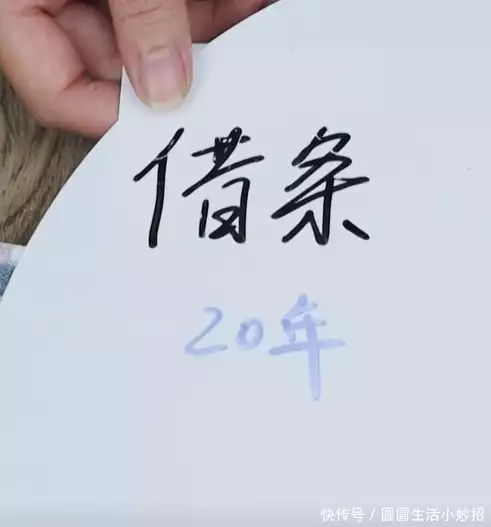 借条
20年
快传号／圆圆生活小妙招